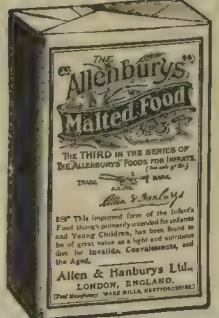 THE
"Allenburys"
Malted Food
No. 3.
THE THIRD IN THE SERIES OF
THE "ALLENBURYS" FOODS FOR INFANTS.
TRADE MARK.
Allen & Hanburys
This improved form of the Infant's
Food though primarily intended for infants
and Young Children, has been found to
be of great value as a light and nutritious
diet for Invalids, Convalescents, and
the Aged.
Allen & Hanburys Ltd.,
LONDON, ENGLAND.
WARE MILLS, HERTFORDSHIRE.